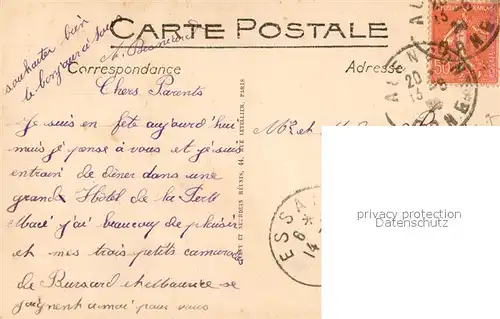 souhaiter bien
le bonjour à
CARTE POSTALE
Correspondance
Adresse
Chers Parents
Je suis en fête aujourd'hui
mais je pense à vous et je suis
entrain de diner dans une
grande Hotel de la Ferté
Macé j'ai beaucoup de plaisir
et mes trois petits camarades
de et Maurice se
joignent a moi pour vous
NEURDEIN RÉUNIS, 44 RUE LETELLIER, PARIS
Mr et
50
20
13 - 8
ORNE
ESSA
6
14
privacy protection